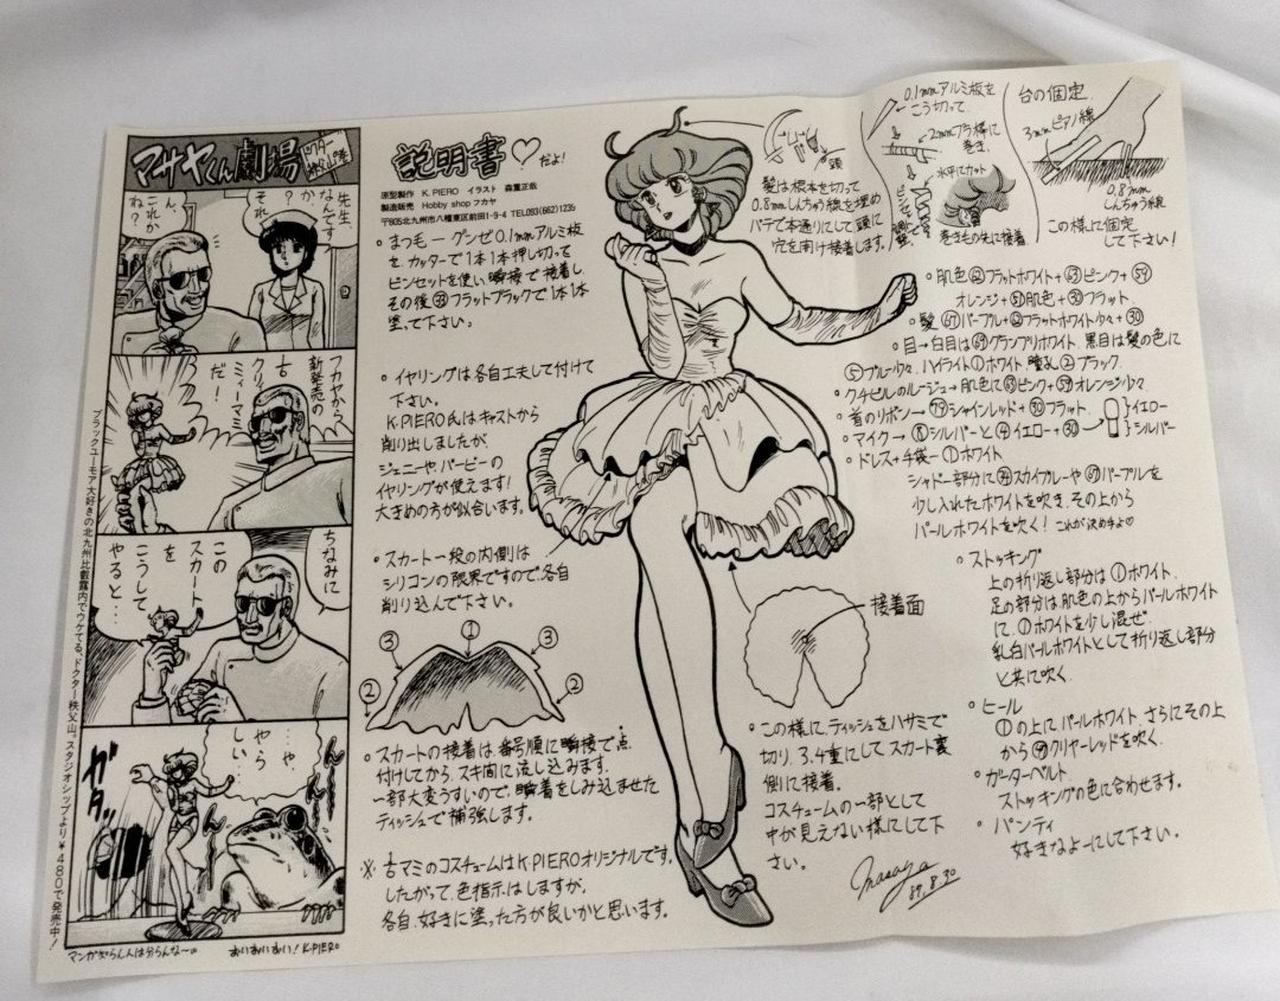 マサヤくん劇場
ドクター秩父山の巻
先生、
なんです
か
?
それ
ん、
これか
ね?
フカヤから
新発売の
古
クリィーミーマミ
だ!
ちなみに
この
スカート
を
こうして
やると…
…や、
やら
しい…
ガタッ
マンガ知らん人は分らんな〜
おいおいおい! K.PIERO
ブラックユーモア大好きの北九州比叡霧内でウケてる、ドクター秩父山。スタジオシップより¥480で発売中!
説明書♡だよ!
原型製作 K.PIERO イラスト 森重正哉
製造販売 Hobby shop フカヤ
〒805北九州市八幡東区前田1-9-4 TEL093(662)1235
・まつ毛ーグンゼ0.1mmアルミ板
を、カッターで1本1本押し切って
ピンセットを使い、瞬接で接着し、
その後㉝フラットブラックで1本1本
塗って下さい。
・イヤリングは各自工夫して付けて
下さい。
K.PIERO氏はキャストから
削り出しましたが、
ジェニーや、バービーの
イヤリングが使えます!
大きめの方が似合います。
・スカート一段の内側は
シリコンの限界ですので、各自
削り込んで下さい。
③ ① ③
② ②
・スカートの接着は、番号順に瞬接で点
付けしてから、スキ間に流し込みます。
一部大変うすいので、瞬着をしみ込ませた
ティッシュで補強します。
※古マミのコスチュームはK.PIEROオリジナルです。
したがって、色指示はしますが、
各自、好きに塗った方が良いかと思います。
頭
髪は根本を切って
0.8mmしんちゅう線を埋め
パテで本通りにして頭に
穴を開け接着します。
0.1mmアルミ板を
こう切って
2mmプラ棒に
巻き、
水平にカット
巻きもの先に接着
台の固定
3mmピアノ線
0.8mm
しんちゅう線
この様に固定
して下さい!
・肌色㊷フラットホワイト+㊿ピンク+59
オレンジ+51肌色+㉚フラット
・髪67パープル+62フラットホワイト少々+㉚
・目→白目は69グランプリホワイト、黒目は髪の色に
⑤ブルー少々、ハイライト①ホワイト、瞳孔②ブラック
・クチビルのルージュ→肌色に63ピンク+59オレンジ少々
・首のリボン→79シャインレッド+㉚フラット
・マイク→⑧シルバーと④イエロー+㉚→
}イエロー
}シルバー
・ドレス+手袋ー①ホワイト
シャドー部分に㉞スカイブルーや67パープルを
少し入れたホワイトを吹き、その上から
パールホワイトを吹く! これが決め手♡
・ストッキング
上の折り返し部分は①ホワイト、
足の部分は、肌色の上からパールホワイト
に、①ホワイトを少し混ぜ、
乳白パールホワイトとして折り返し部分
と共に吹く、
・ヒール
①の上に、パールホワイト、さらにその上
からクリヤーレッドを吹く、
・ガーターベルト
ストッキングの色に合わせます。
・パンティ
好きなよーにして下さい。
接着面
・この様に、ティッシュをハサミで
切り、3.4重にしてスカート裏
側に接着。
コスチュームの一部として
中が見えない様にして下
さい。
Masaya
'89.8.30